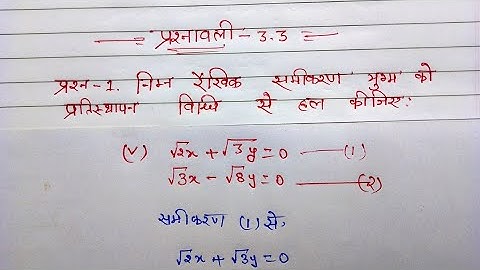 प्रश्नावली - 3.3
प्रश्न-1. निम्न रैखिक समीकरण युग्म को
प्रतिस्थापन विधि से हल कीजिए:
(v) √2x + √3y = 0 — (1)
√3x - √8y = 0 — (2)
समीकरण (1) से,
√2x + √3y = 0